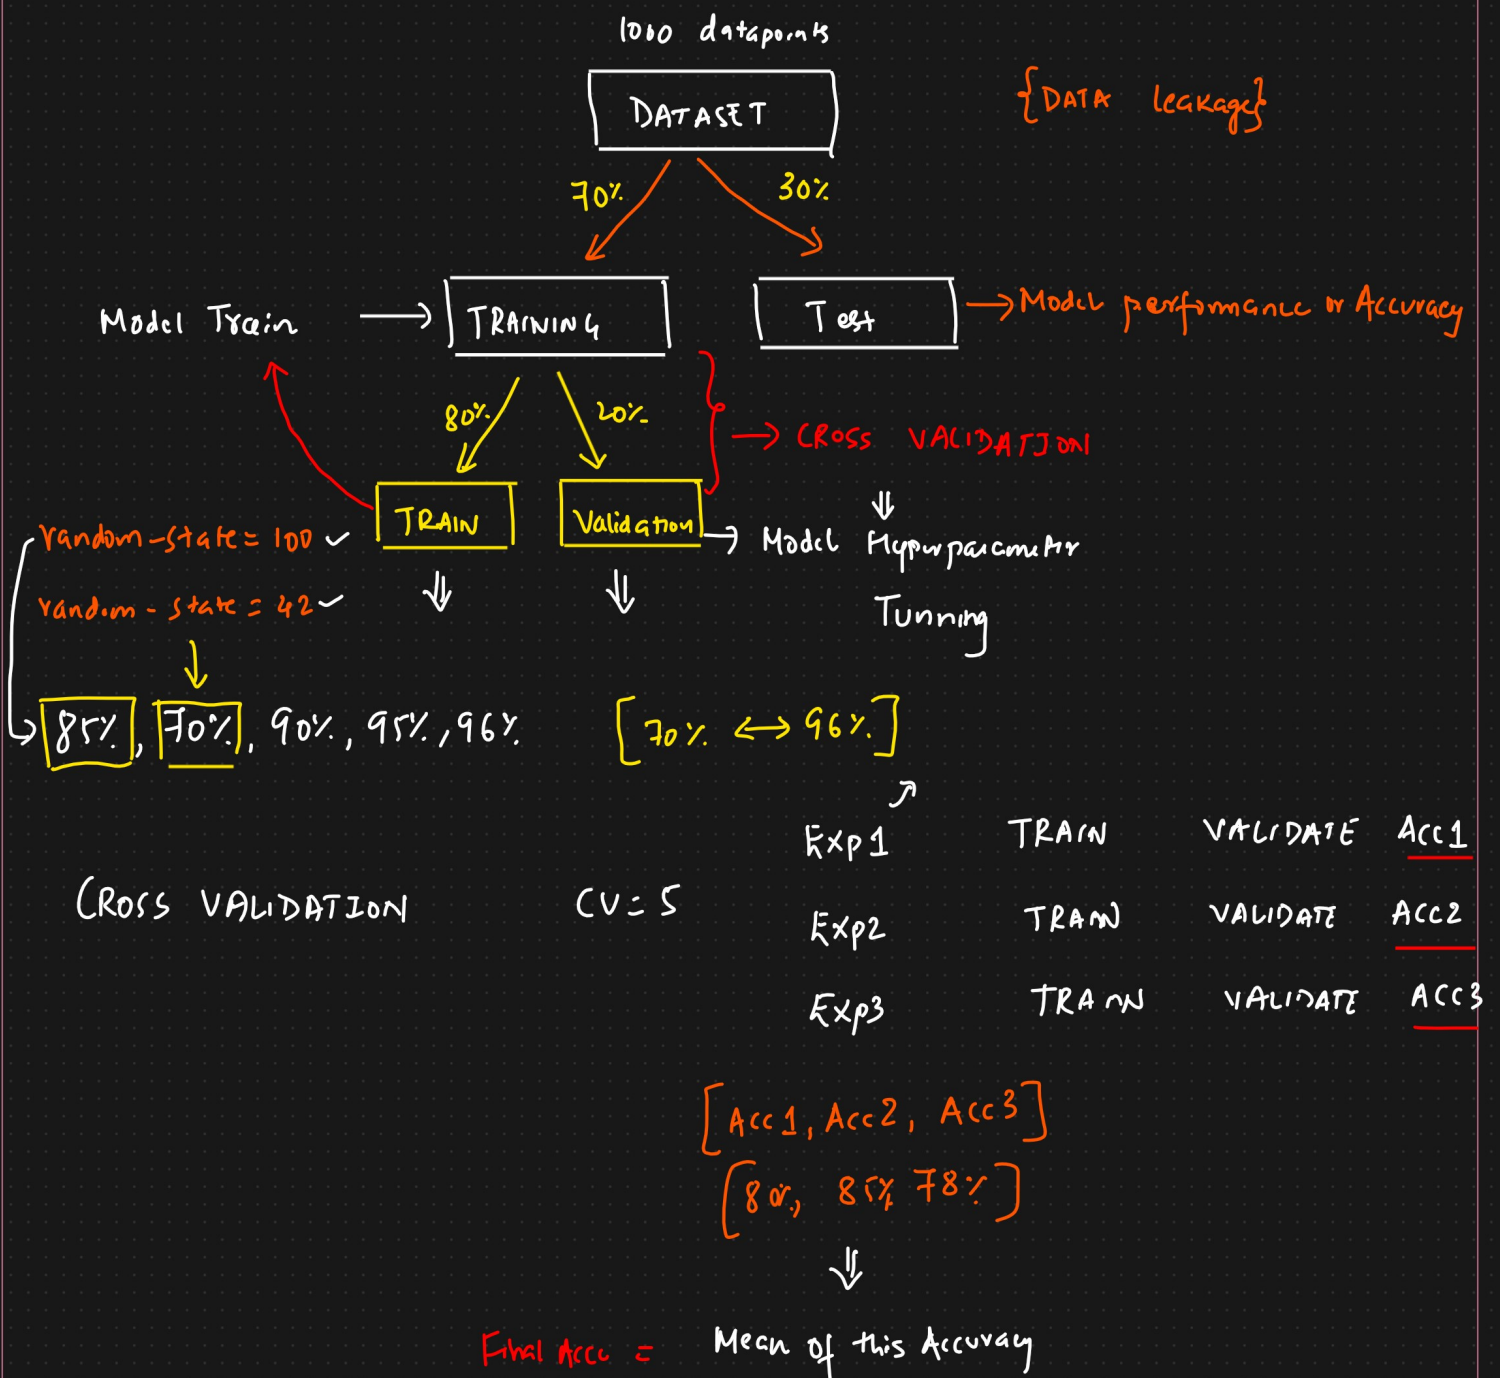 1000 datapoints
DATASET
{DATA leakage}
70% 30%
Model Train → TRAINING Test → Model performance or Accuracy
80% 20%
→ CROSS VALIDATION
TRAIN Validation → Model Hyperparameter
Tunning
random-state = 100 ✓
random-state = 42 ✓
85%, 70%, 90%, 95%, 96% [70% ↔ 96%]
Exp1 TRAIN VALIDATE Acc1
CROSS VALIDATION CV = 5
Exp2 TRAIN VALIDATE ACC2
Exp3 TRAIN VALIDATE ACC3
[Acc1, Acc2, Acc3]
[80%, 85% 78%]
Final Accu = Mean of this Accuracy